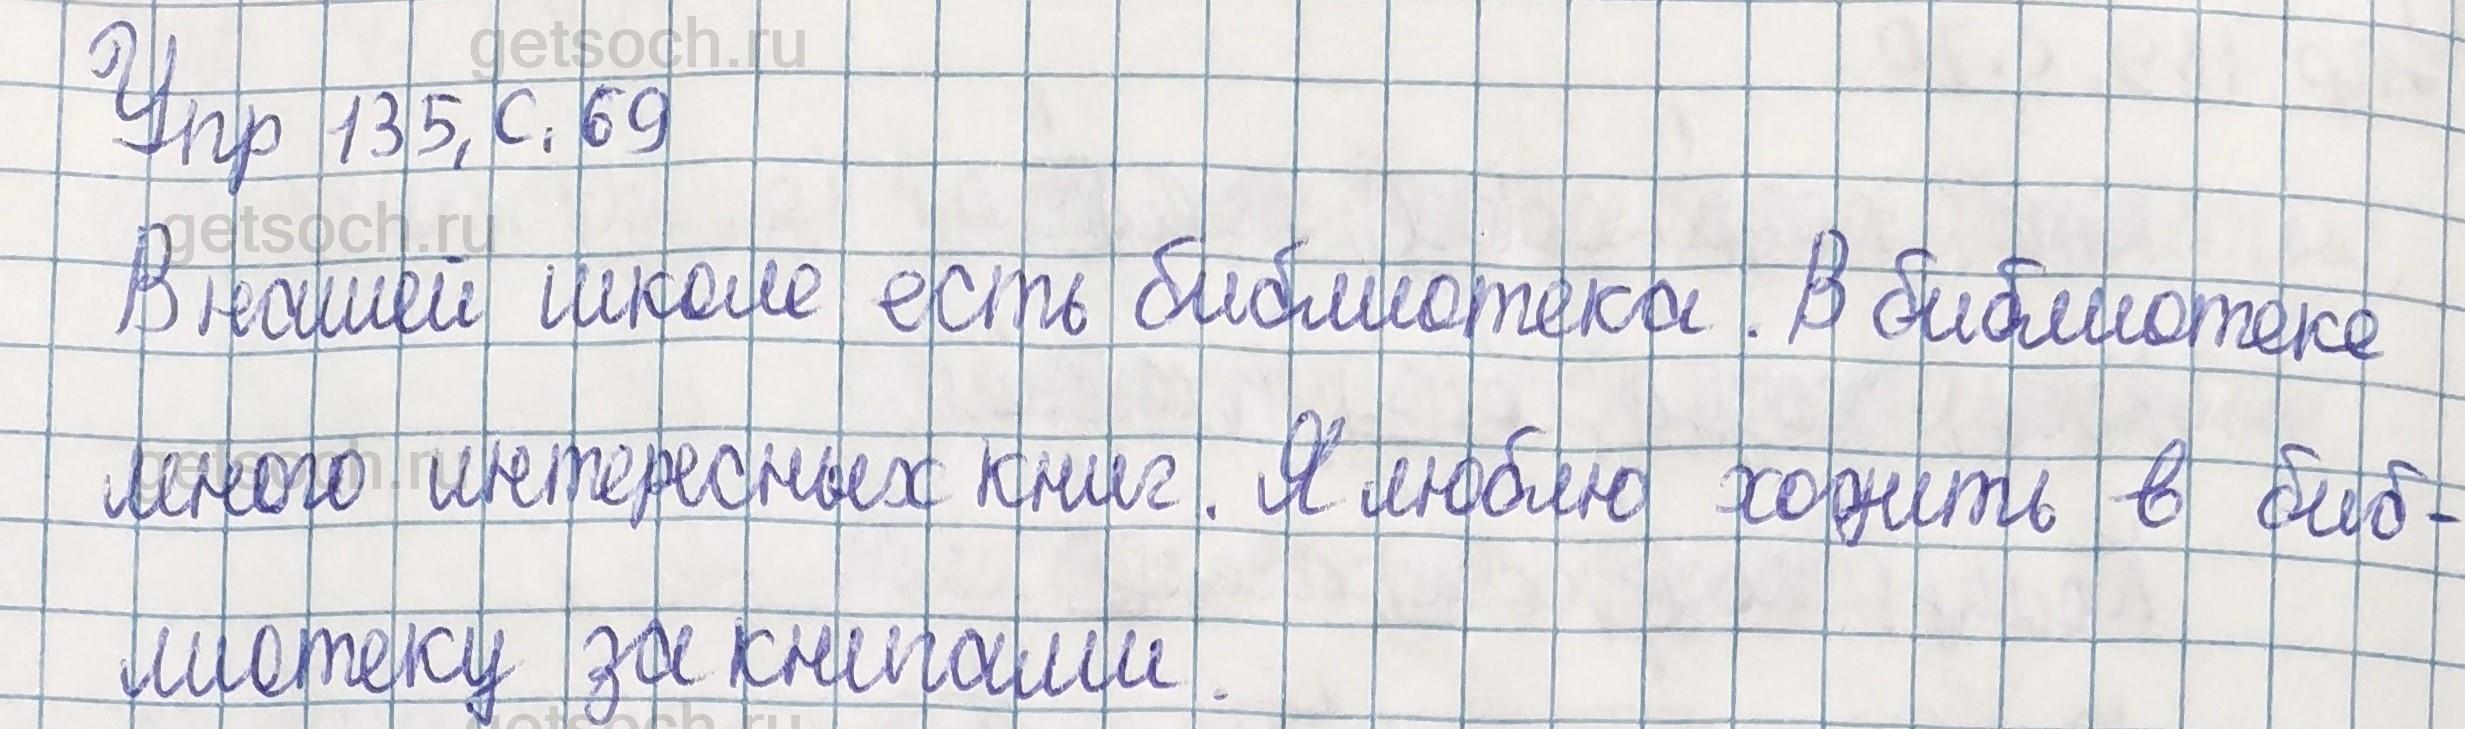 getsoch.ru
Упр 135, с. 69
getsoch.ru
В нашей школе есть библиотека. В библиотеке
getsoch.ru
много интересных книг. Я люблю ходить в биб-
лиотеку за книгами.
getsoch.ru